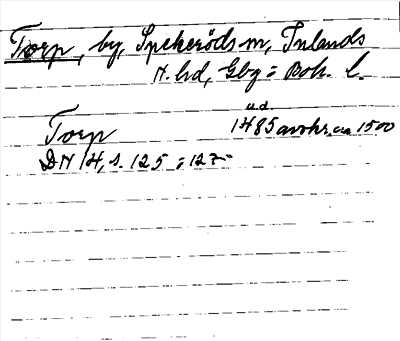 Torp, by, Spekeröds sn, Inlands
N. hd, Gbg = Boh. l.
u.d.
Torp 1485 avskr. ca 1500
DN 14, s. 125 ; 127